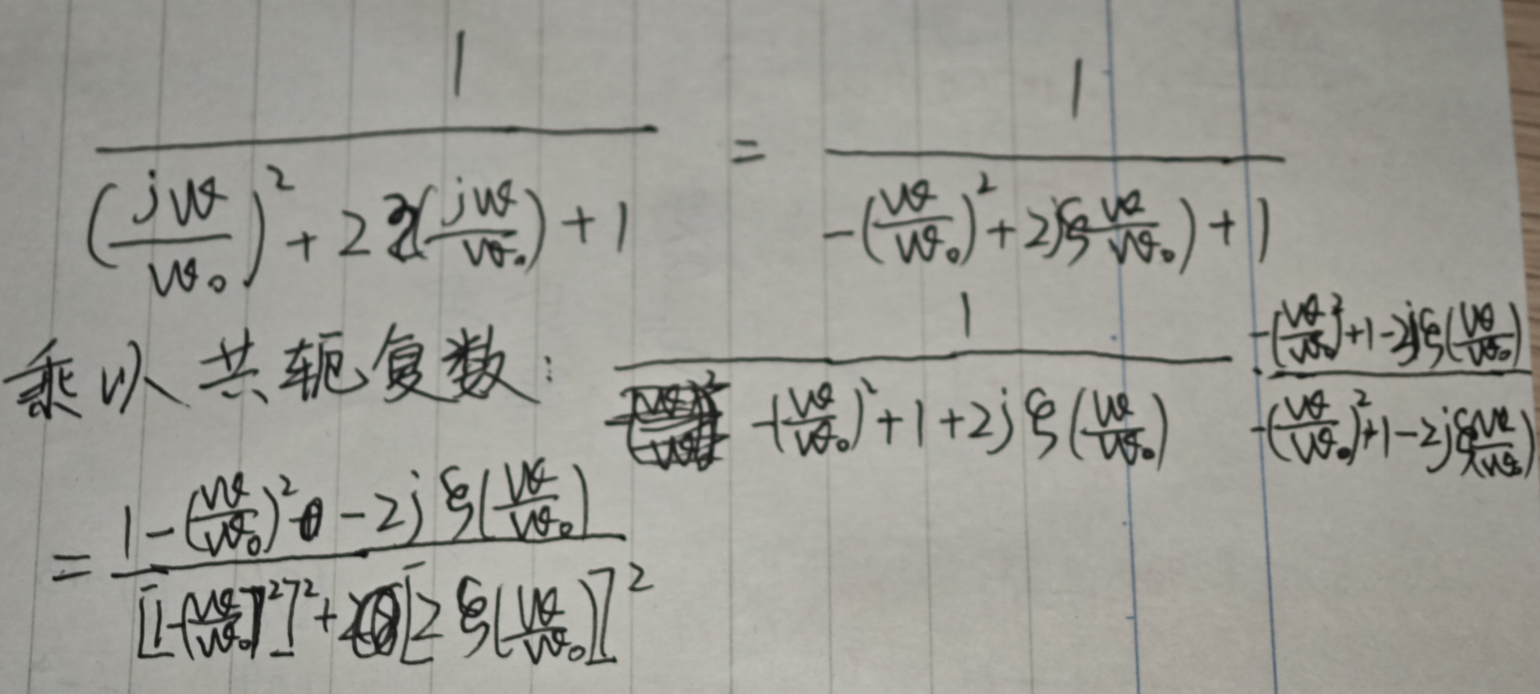 1/((jω/ω₀)² + 2ξ(jω/ω₀) + 1) = 1/(-(ω/ω₀)² + 2jξω/ω₀) + 1)
乘以共轭复数: 1/(-(ω/ω₀)² + 1 + 2jξ(ω/ω₀)) · (-(ω/ω₀)² + 1 - 2jξ(ω/ω₀))/(-(ω/ω₀)² + 1 - 2jξ(ω/ω₀))
= (1 - (ω/ω₀)² - 2jξ(ω/ω₀))/([1 - (ω/ω₀)²]² + [2ξ(ω/ω₀)]²)